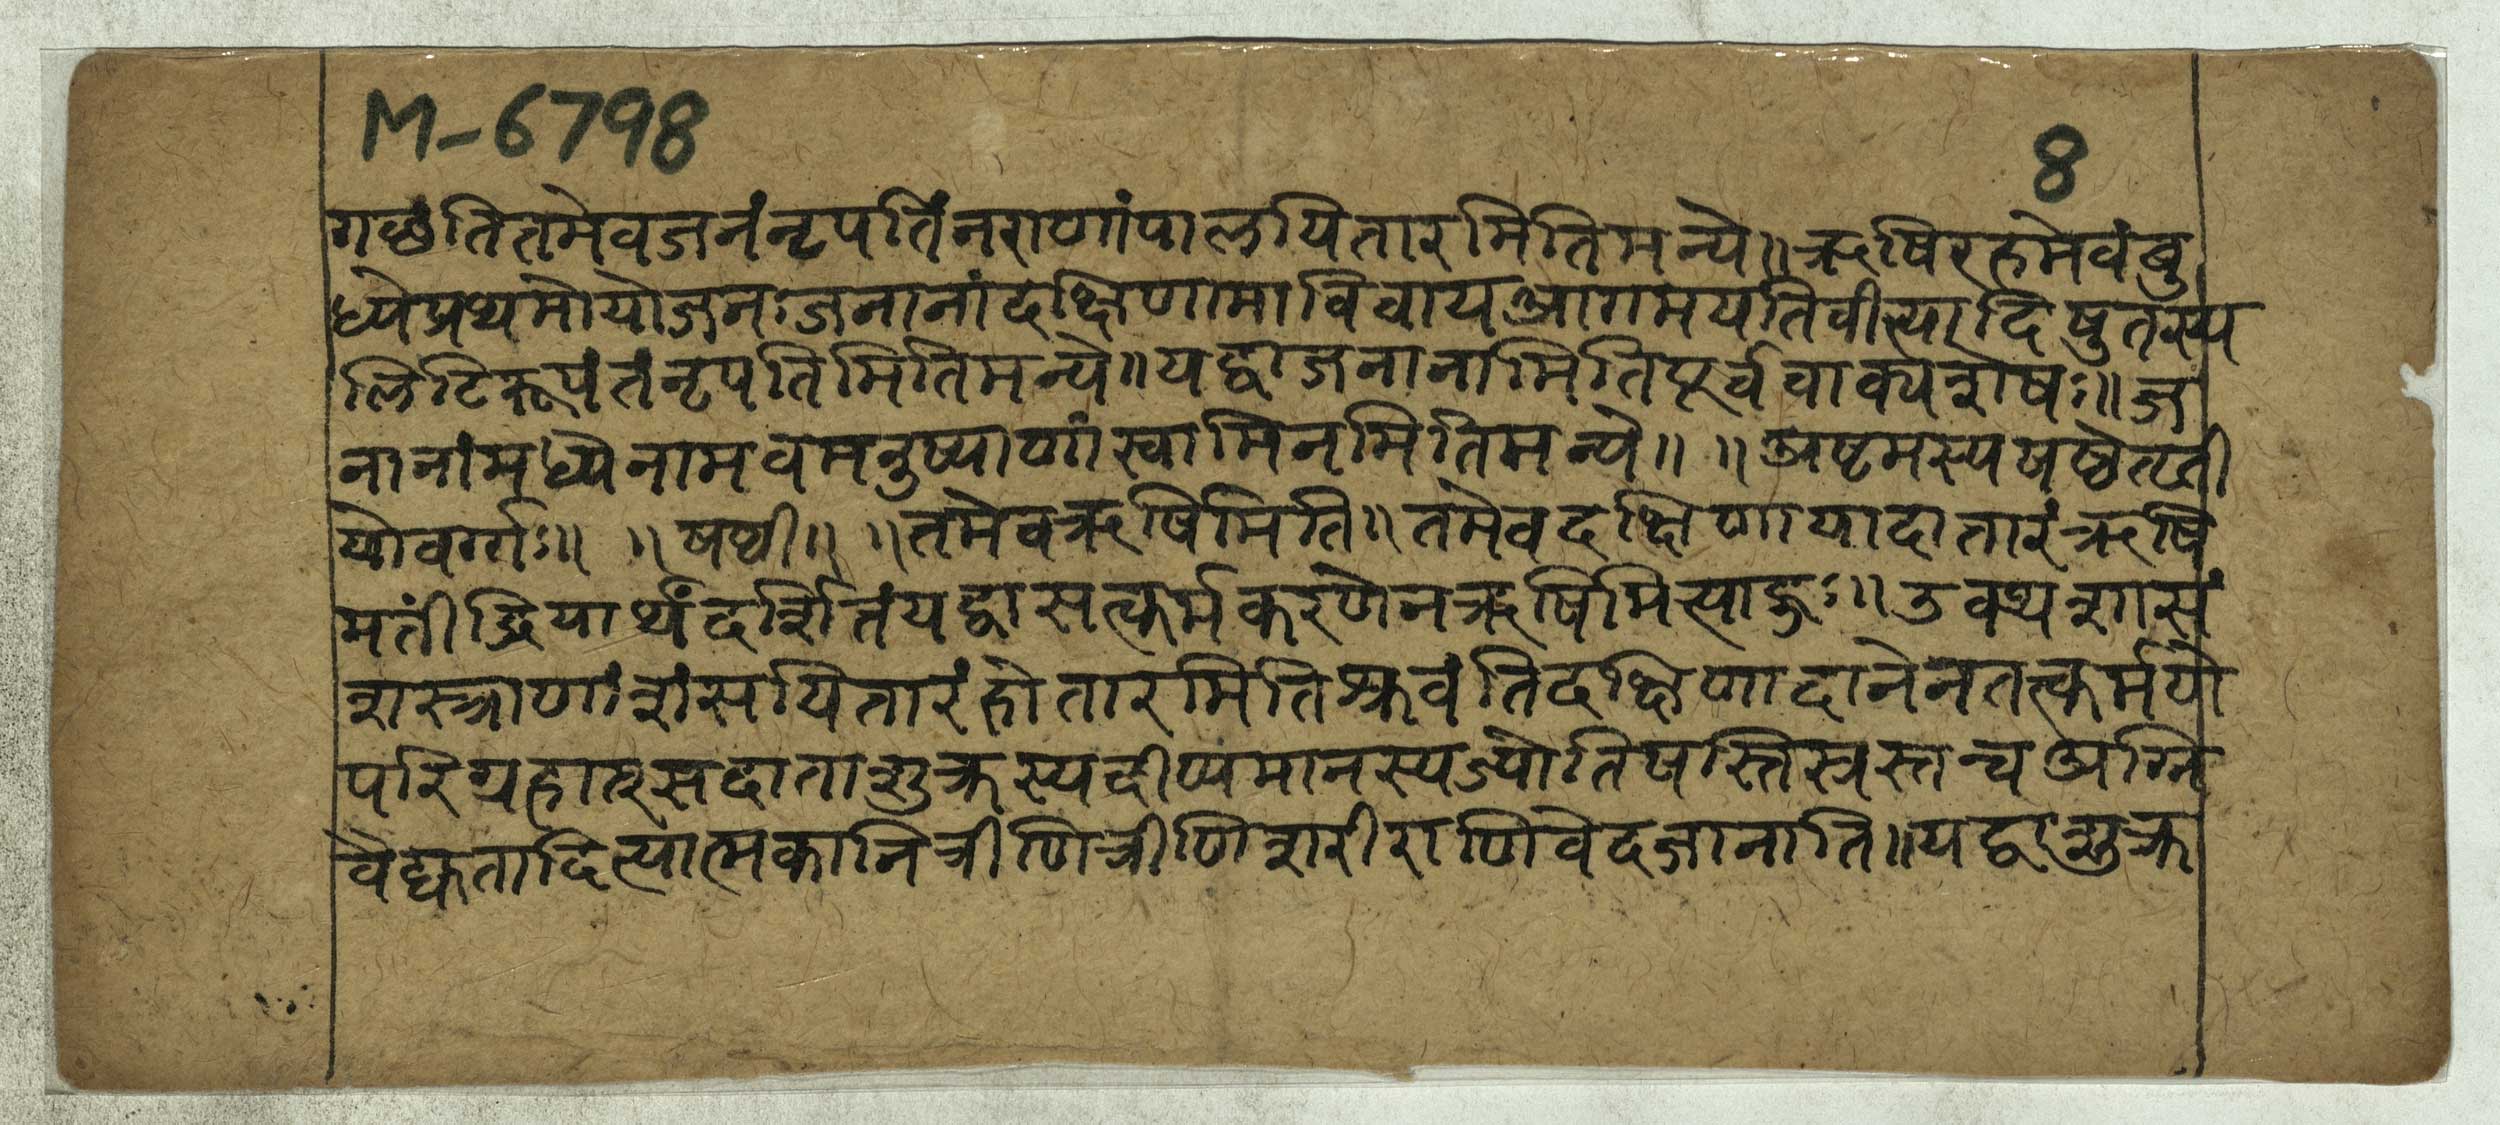 M-6798
8
गछंतितमेवजनंनृपतिंनराणांपालयितारमितिमन्ये॥ऋषिरहमेवंबु
ध्येप्रथमोयोजनःजनानांदक्षिणामाविवायआगमयतिवीत्यादिषुतस्य
लिटिरूपंतंनृपतिमितिमन्ये॥यद्वाजनानामितिपूर्ववाक्यशेषः॥ज
नानांमध्येनामवमनुष्याणांस्वामिनमितिमन्ये॥ ॥अष्टमस्यषष्ठेतृती
योवर्गः॥ ॥षष्ठी॥ ॥तमेवऋषिमिति॥तमेवदक्षिणायादातारंऋषि
मतींद्रियार्थंदर्शितंयद्वासत्कर्मकरणेनऋषिमित्याहुः॥उक्थशासं
शस्त्राणांशंसयितारंहोतारमितिब्रुवंतिदक्षिणादानेनतत्कर्मणे
परिग्रहात्सदाताशुक्रस्यदीप्यमानस्यज्योतिषस्तिस्रस्तन्वअग्नि
वैद्युतादित्यात्मकानित्रीणित्रीणिशरीराणिवेदजानाति॥यद्वाशुक्र